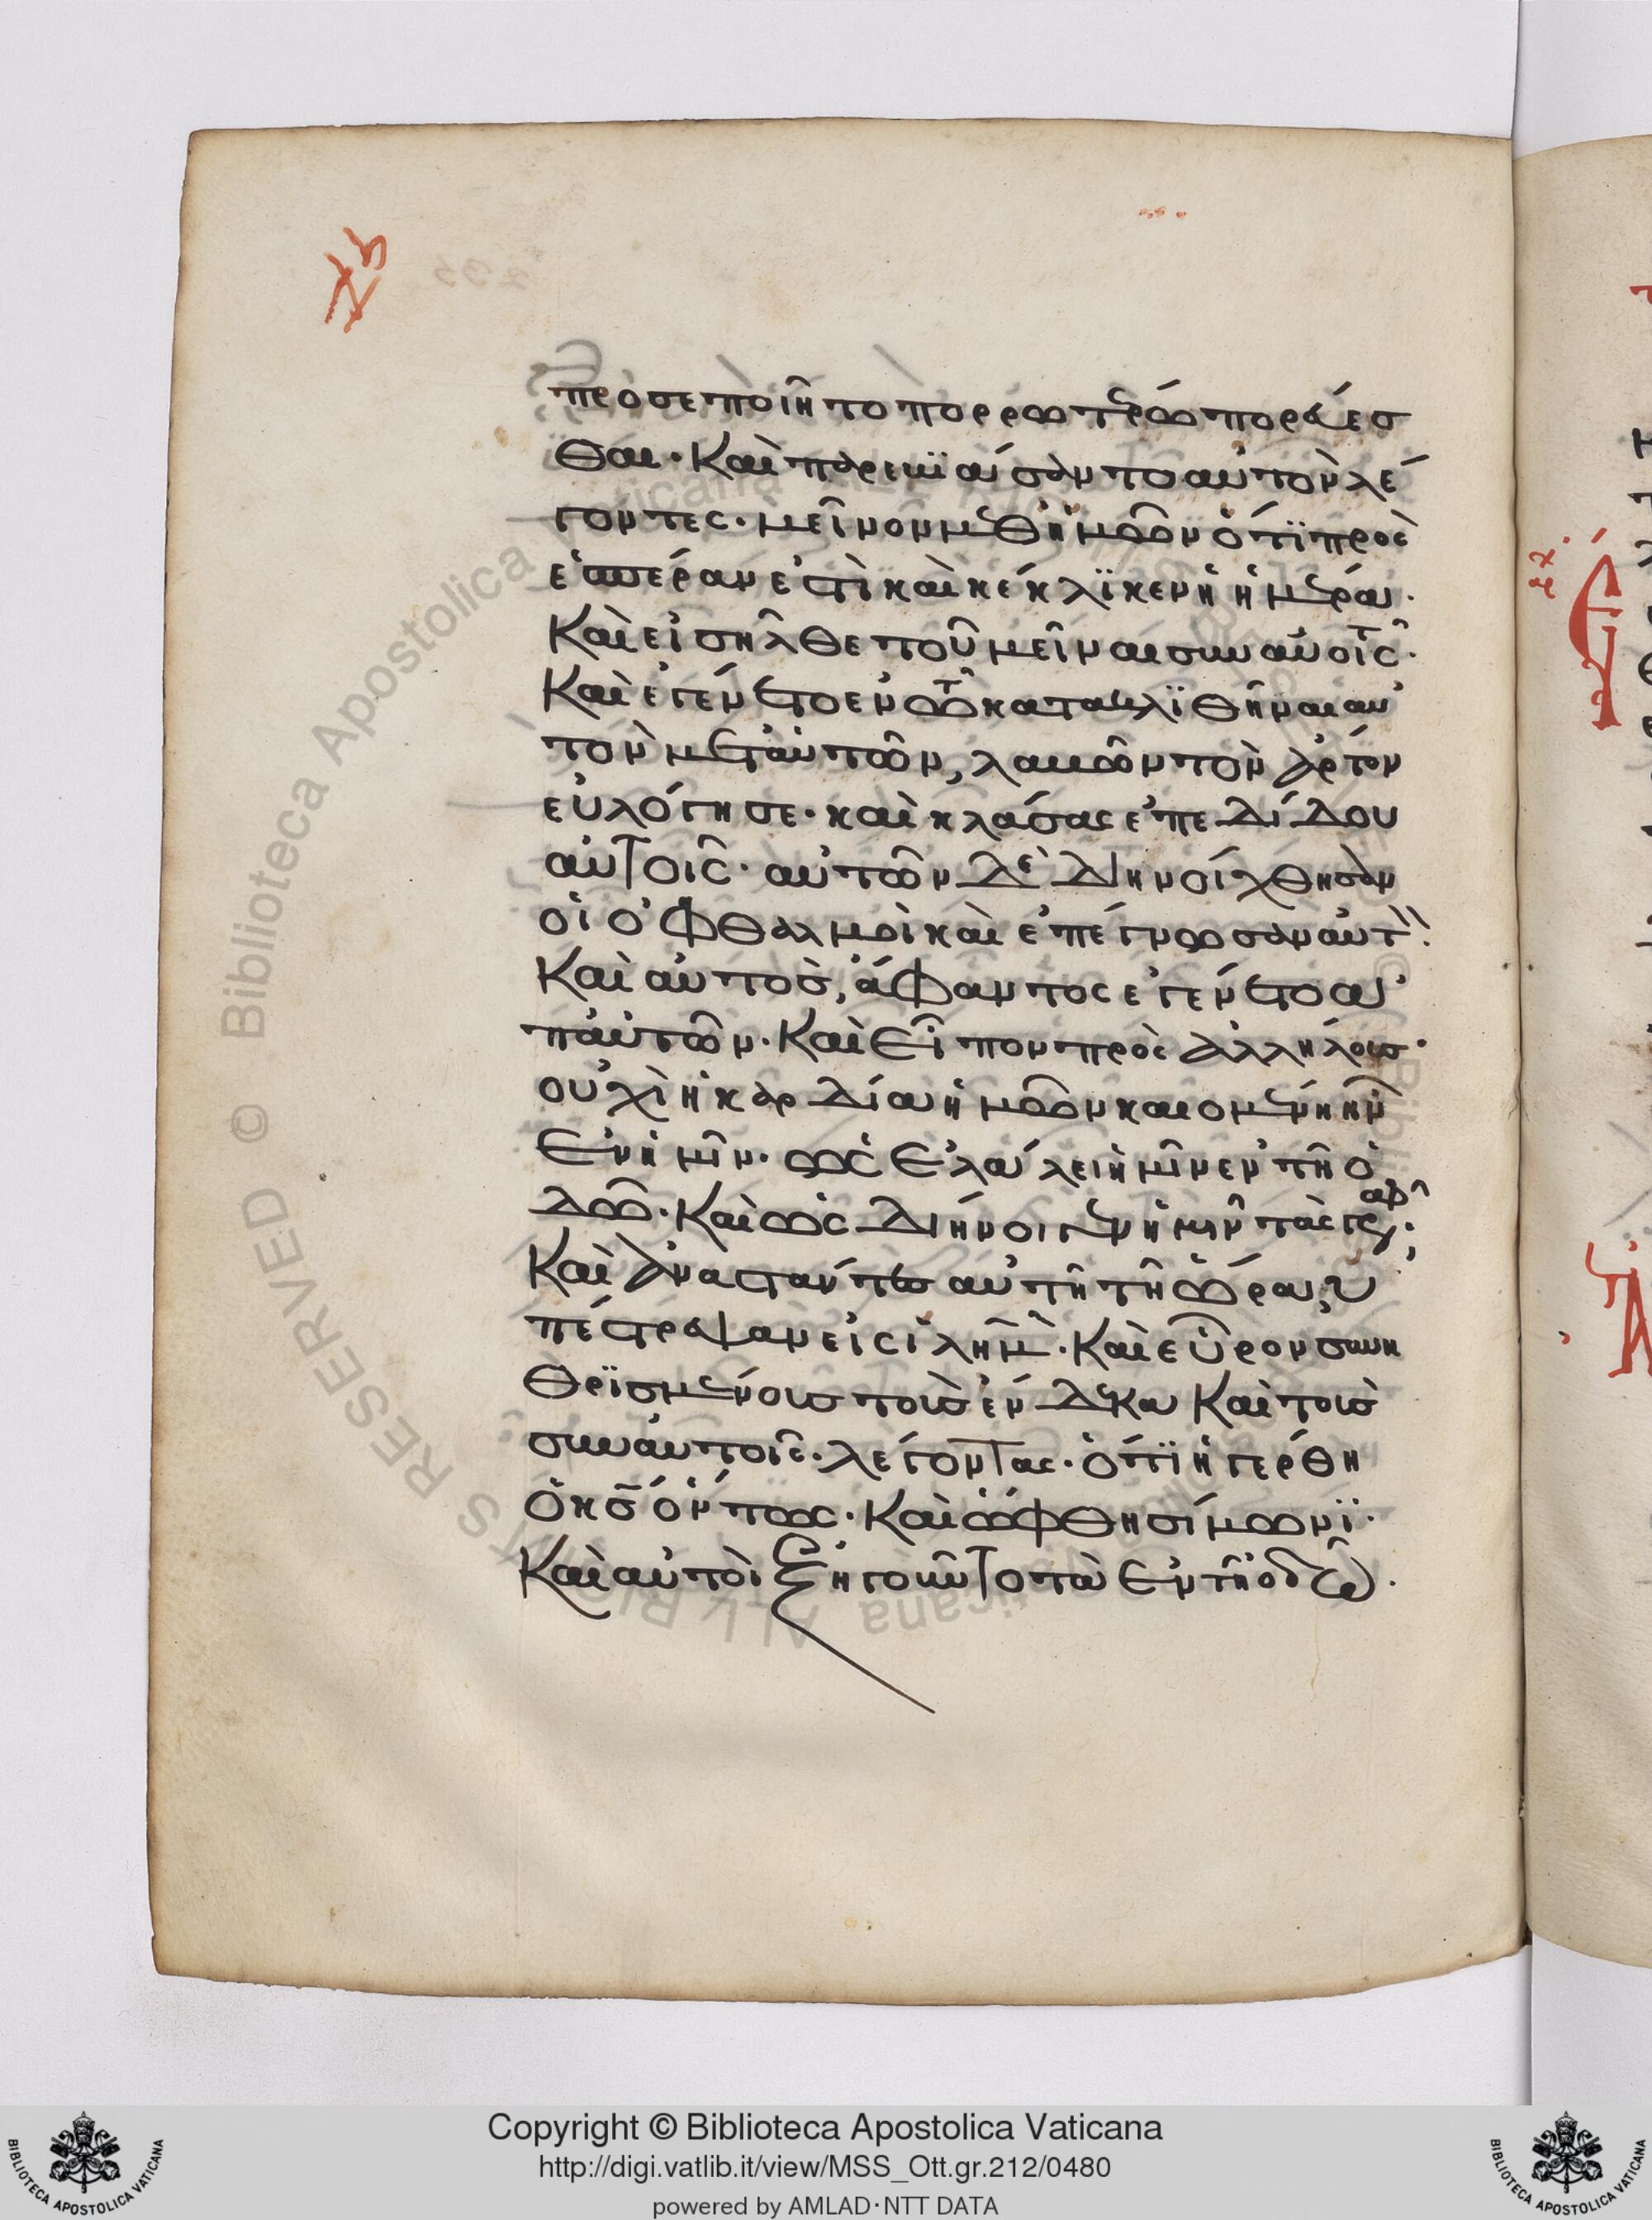 προσεποιῆτο πορρωτέρω πορεύεσ
θαι· Καὶ παρεβϊάσαντο αὐτὸν λέ
γοντες· μεῖνον μεθ ἡμῶν ὅτϊ πρὸς
ἑσπέραν ἐστὶ καὶ κέκλϊκεν ἡ ἡμέρα·
Καὶ εἰσῆλθε τοῦ μεῖναι συν αὐτοῖς·
Καὶ ἐγένετο ἐν τῶ κατακλϊθῆναι αὐ
τὸν μετ αὐτῶν, λαβὼν τὸν ἄρτον
εὐλόγησε· καὶ κλάσας ἐπεδίδου
αὐτοῖς· αὐτῶν δὲ διηνοίχθησαν
οἱ ὀφθαλμοὶ καὶ ἐπέγνωσαν αὐτ̀·
Καὶ αὐτὸσ, ἄφαντος ἐγένετο ἀ
π αὐτῶν· Καὶ εἶπον πρὸς ἀλλήλους·
οὐχὶ ἡ καρδία ἡμῶν καιομένη ἦν
ἐν ἡμῖν· ὡς ἐλάλει ἡμῖν ἐν τῆ ὁ
δῶ· Καὶ ὡς διήνοιγεν ἡμῖν τὰς γραφ̑·;
Καὶ ἀναστάντες αὐτῆ τῆ ὥρα, ὑ
πέστρεψαν εἰς ἱλῆμ̀· Καὶ εὗρον συνη
θρϊσμένους τοὺς ἕνδεκα Καὶ τοὺσ
συν αὐτοῖς· λέγοντας· ὅτϊ ἠγέρθη
ὁ κσ̄ ὄντως· Καὶ ὤφθη σίμωνϊ·
Καὶ αὐτοὶ ἐξηγοῦντο τὰ ἐν τῆ ὁδῶ·
Copyright © Biblioteca Apostolica Vaticana
http://digi.vatlib.it/view/MSS_Ott.gr.212/0480
powered by AMLAD·NTT DATA
BIBLIOTECA APOSTOLICA VATICANA
BIBLIOTECA APOSTOLICA VATICANA